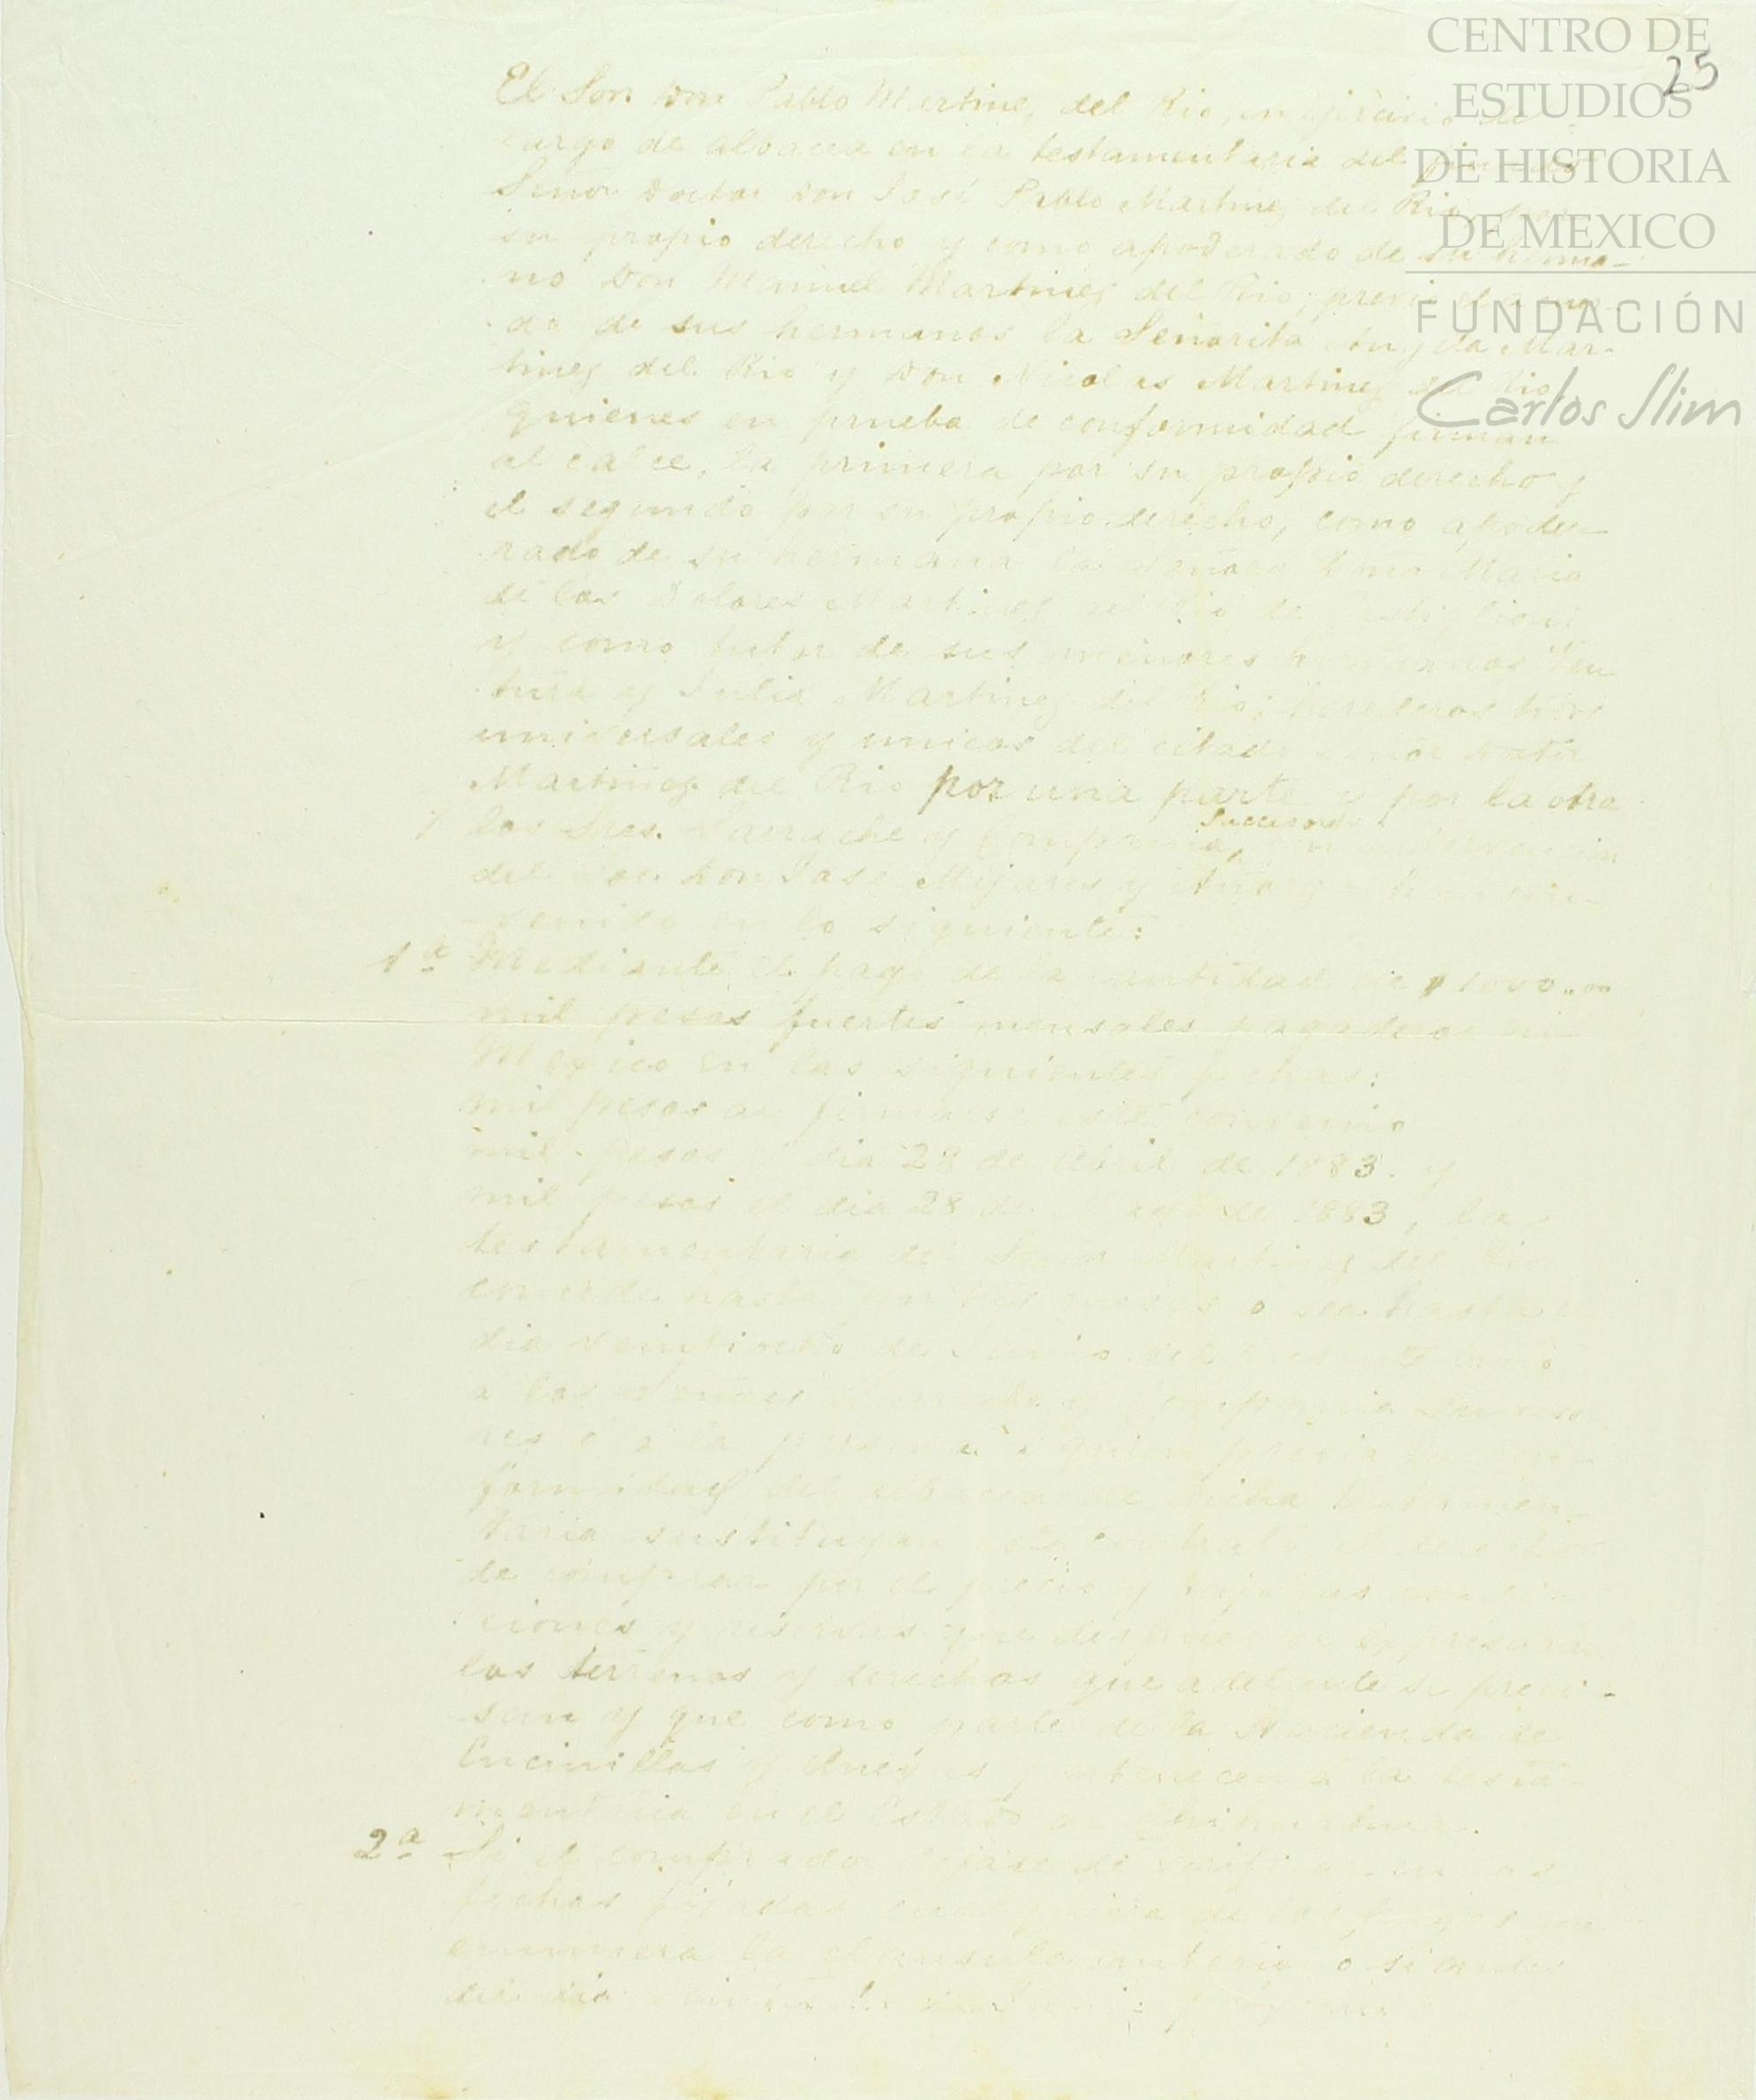 CENTRO DE
ESTUDIOS
DE HISTORIA
DE MEXICO
FUNDACIÓN
Carlos Slim
25
El Sor. Don Pablo Martinez del Rio, en ejercicio del
cargo de albacea en la testamentaria del finado
Señor Doctor Don José Pablo Martinez del Rio, por
su propio derecho y como apoderado de su herma-
no Don Manuel Martinez del Rio; previo el acuer-
do de sus hermanos la Señorita Angela Mar-
tinez del Rio y Don Nicolas Martinez del Rio,
quienes en prueba de conformidad firman
al calce, la primera por su propio derecho y
el segundo por su propio derecho, como apode-
rado de su hermana la Señora Doña Maria
de los Dolores Martinez del Rio de
y como tutor de sus menores hermanos Ven-
tura y Julia Martinez del Rio; herederos todos
universales y unicos del citado Señor Doctor
Martinez del Rio por una parte y por la otra
los Sres. Larrache y Compañia, Sucesores con intervencion
del Sor. Don José Mijares y Añorga han con-
venido en lo siguiente:
1ª Mediante el pago de la cantidad de $1000..00
mil pesos fuertes mensales pagaderos en
Mexico en las siguientes fechas:
mil pesos al firmarse este convenio
mil pesos el dia 28 de Abril de 1883. y
mil pesos el dia 28 de Mayo de 1883, la
testamentaria del Señor Martinez del Rio
concede hasta por tres meses o sea hasta el
dia veintiocho de Junio del presente año
a los Señores Larrache y Compañia Suceso-
res o a la persona a quien previa la con-
formidad del albacea de dicha testamen-
taria sustituyan este contrato el derecho
de comprar por el precio y bajo las condi-
ciones y reservas que despues se expresarán
los terrenos y derechos que adelante se preci-
san y que como parte de la Hacienda de
Encinillas y Anexas pertenecen a la testa-
mentaria en el Estado de Chihuahua.
2ª Si el comprador dejare de verificar en las
fechas fijadas cualquiera de los pagos que
enumera la clausula anterior o si antes
del dia